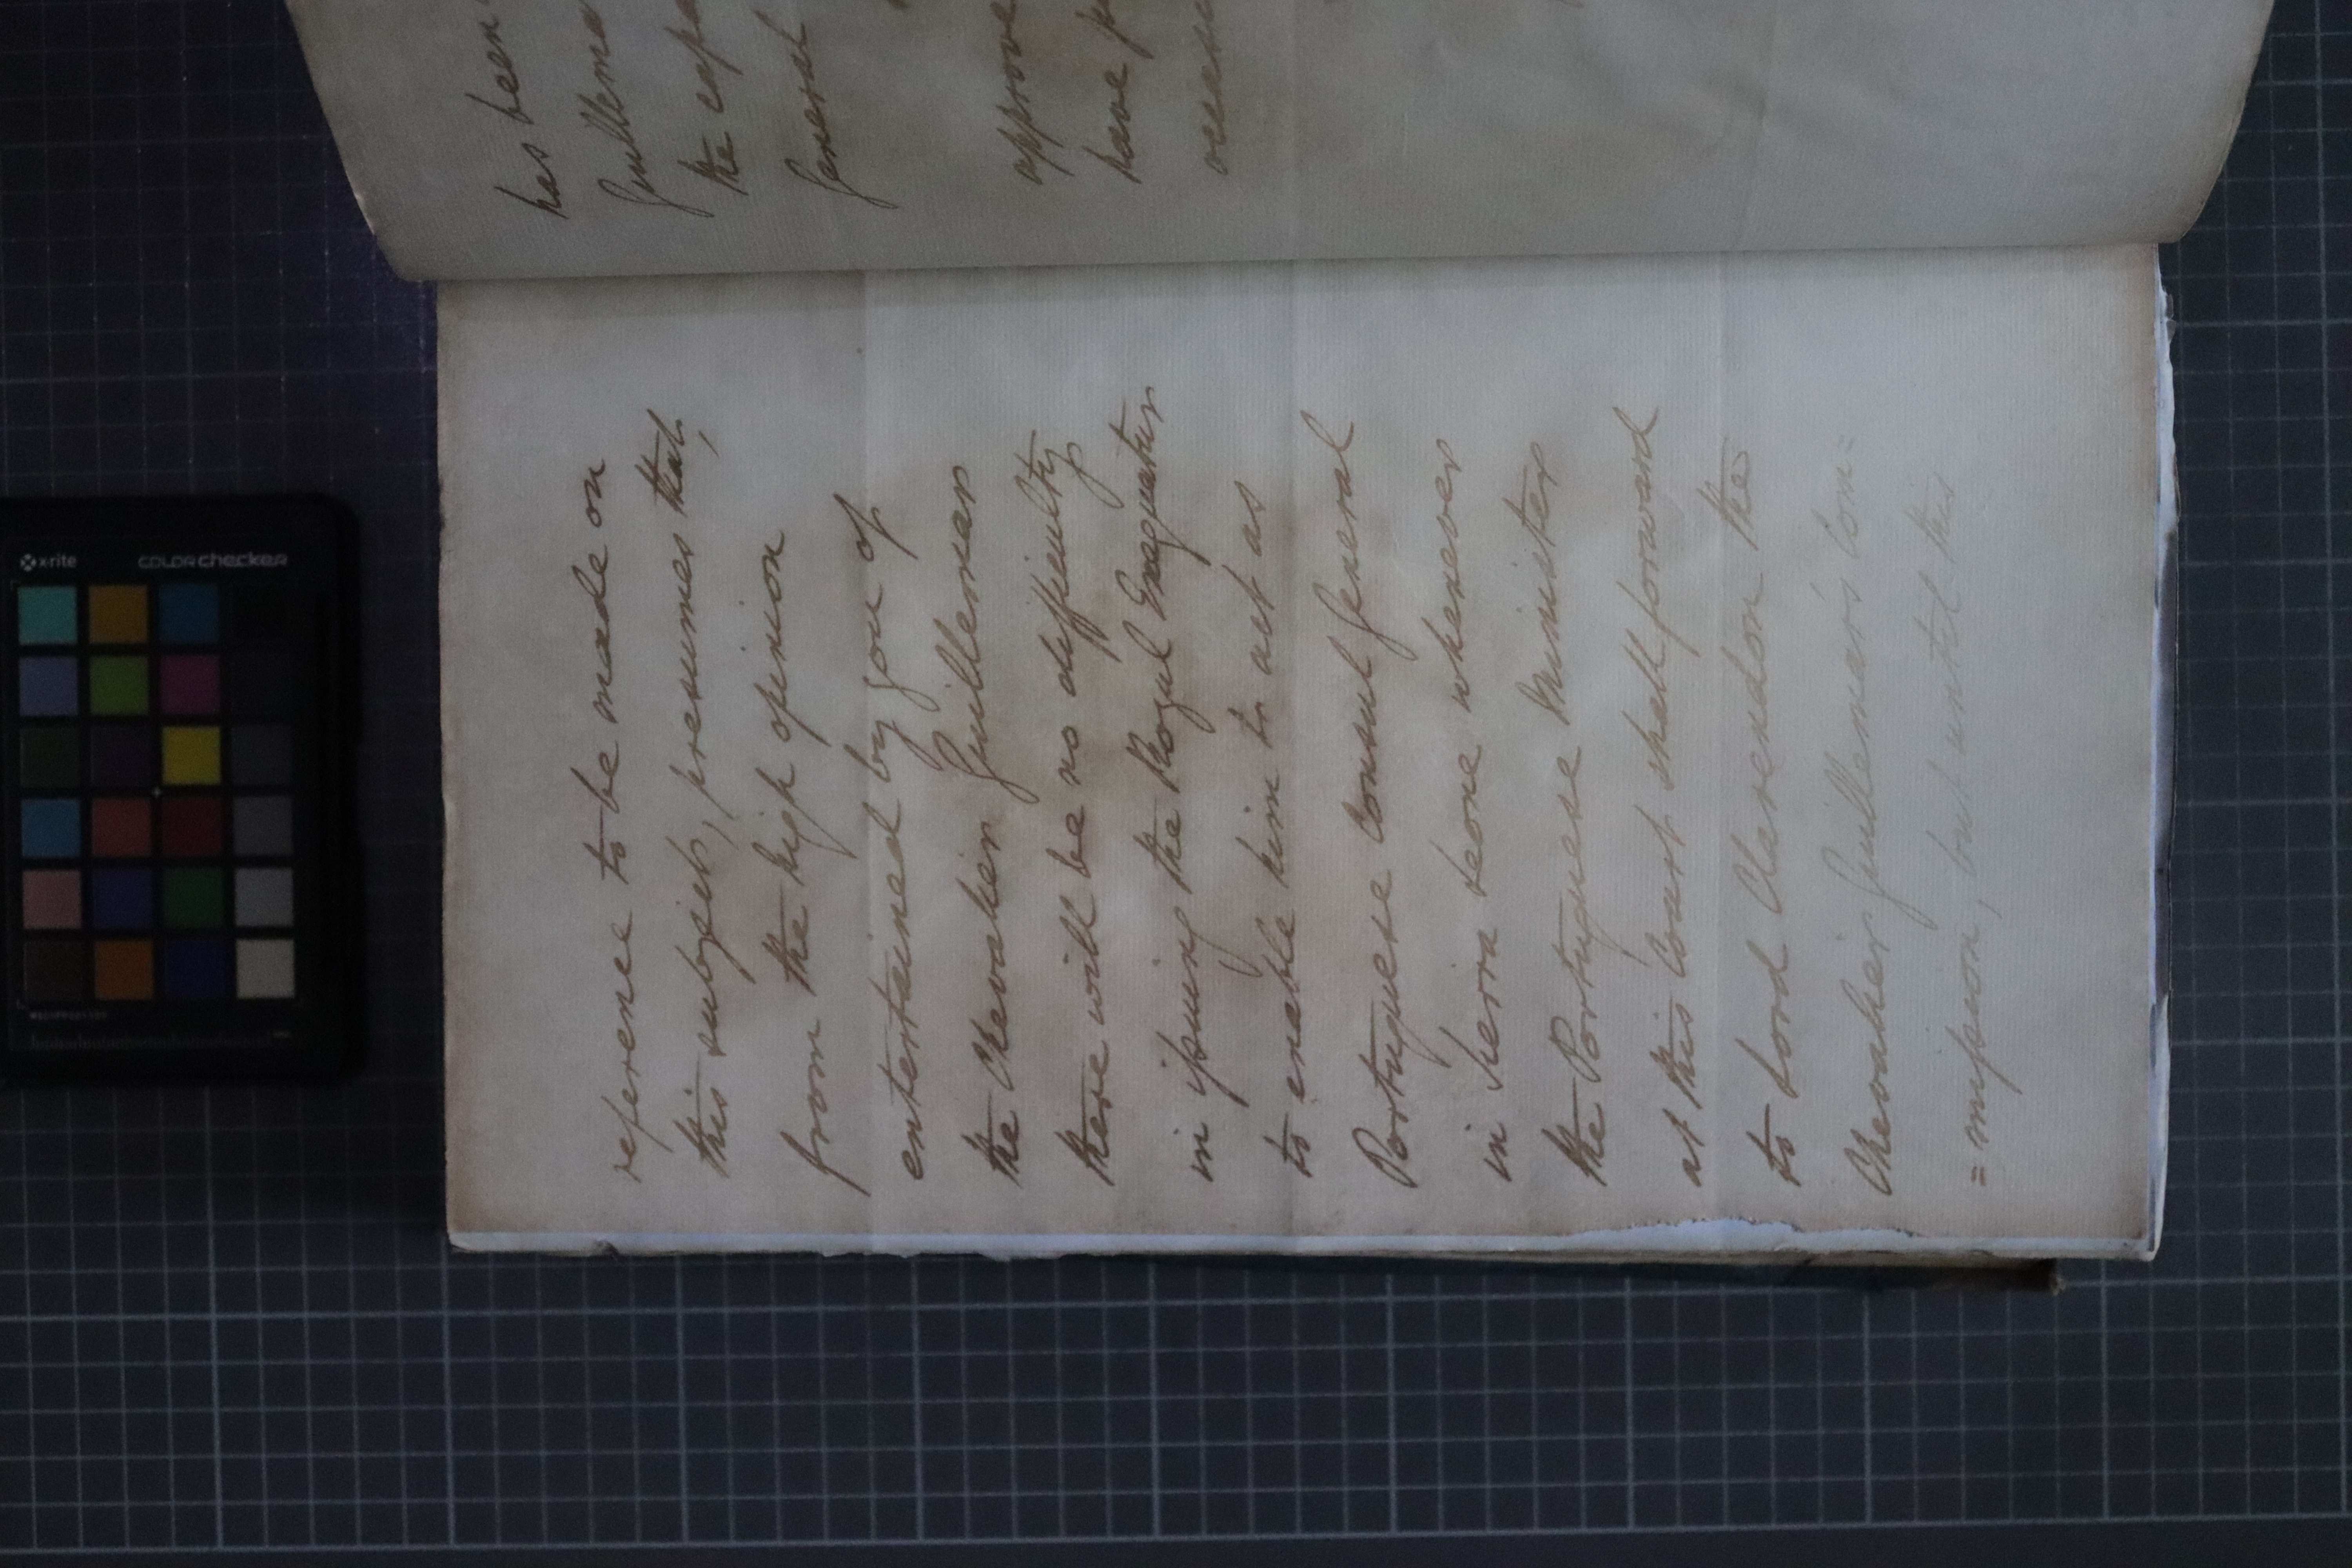 has been
Guillema
the capa
General
approve
have p
occasi
reference to be made on
this subject, presumes that,
from the high opinion
entertained by you of
the Chevalier Guillemar
there will be no difficulty
in issuing the Royal Exequatur
to enable him to act as
Portuguese Consul General
in Sierra Leone whenever
the Portuguese Minister
at this Court shall forward
to Lord Clarendon the
Chevalier Guillemar's Com=
=mission, but until this
x-rite
colorchecker